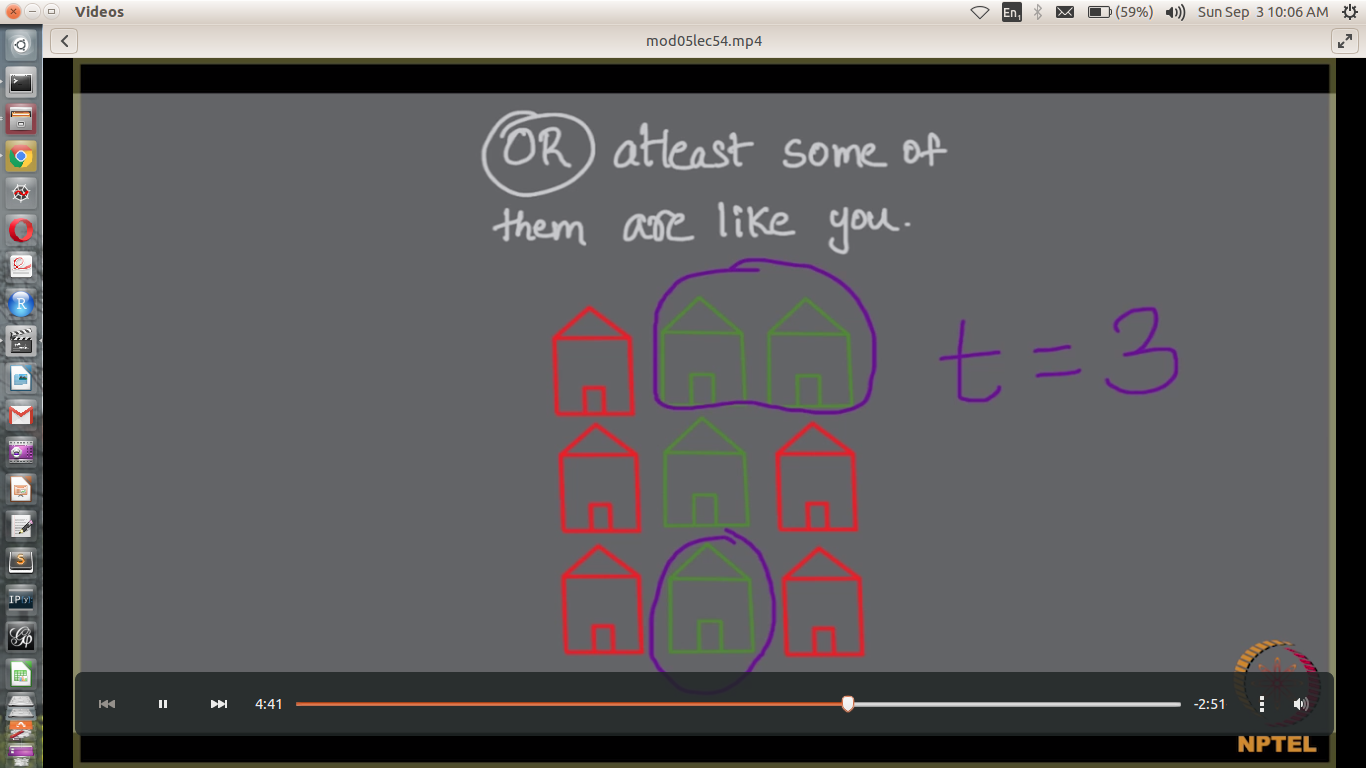 Videos
En1
(59%)
Sun Sep 3 10:06 AM
mod05lec54.mp4
OR atleast some of
them are like you.
t = 3
4:41
-2:51
NPTEL